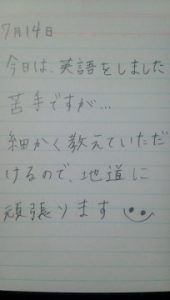 7月14日
今日は、英語をしました
苦手ですが...
細かく教えていただ
けるので、地道に
頑張ります